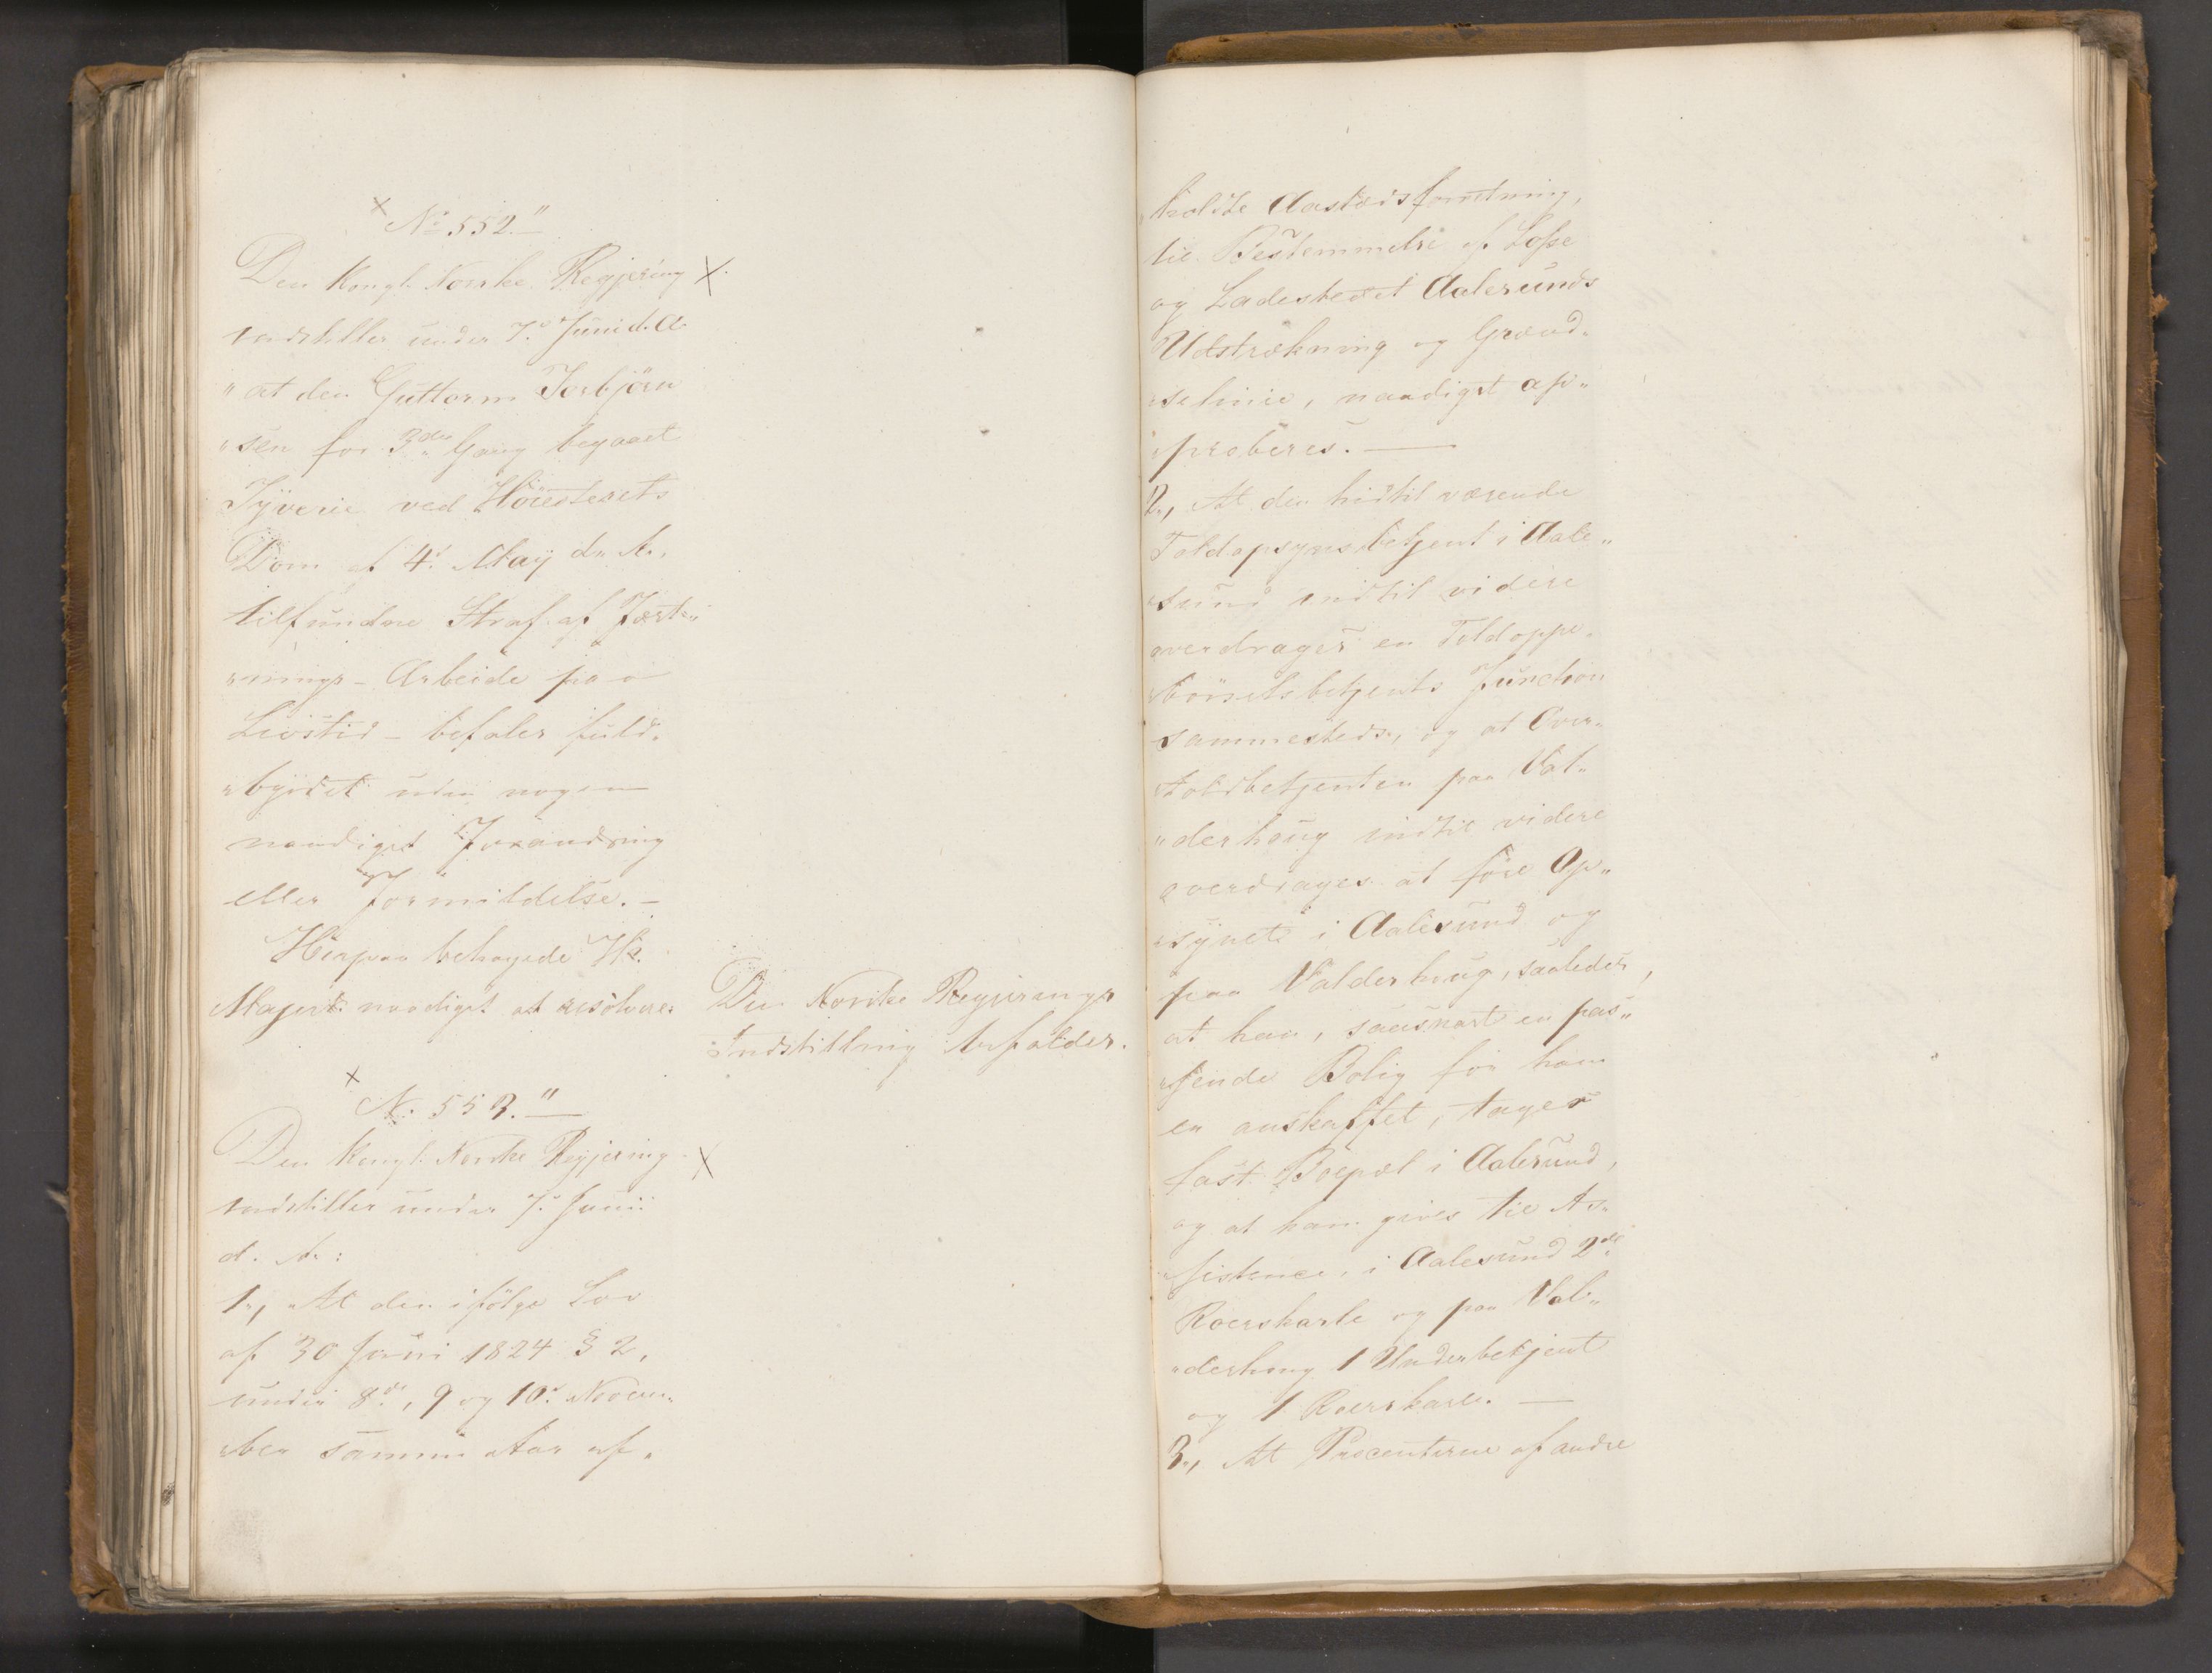 × No 552."
Den Kongl. Norske Regjering ×
indstiller under 7de Juni d. A.
"at den Guttorm Torbjörn
"sen for 3die Gang begaaet
Tyverie ved Höiesterets
Dom af 4. May d. A.
tilfundne Straf af Fæst"
"nings-Arbeide paa
Livstid - befales fuld"
"byrdet uden nogen
naadigst Forandring
eller Formildelse. -
Herpaa behagede Hs.
Majest. naadigst at resolvere:
Den Norske Regjerings
Indstilling bifaldes.
× N. 553."
Den Kongl. Norske Regjering ×
indstiller under 7. Junii
d. A.:
1., At den ifölge Lov
af 30 Juni 1824 § 2,
under 8de, 9 og 10. Novem"
"ber samme Aar af"
"holdte Aastædsforretning,
til Bestemmelse af Losse
og Ladestedet Aalesunds
Udstrækning og Grænd"
"selinie, naadigst ap"
"proberes. —
2., At den hidtil værende
Toldopsynsbetjent i Aale"
"sund indtil videre
overdrages en Toldoppe"
"börselsbetjents Function
sammesteds, og at Over"
"toldbetjenten paa Val"
"derhoug indtil videre
overdrages at före Op"
"synet i Aalesund og
paa Valderhoug, saaledes,
at han, saasnart en pas"
"sende Bolig for ham
er anskaffet, tager
fast Boepæl i Aalesund,
og at ham gives til As"
"sistence, i Aalesund 2de
Roerskarle og paa Val"
"derhoug 1 Underbetjent
og 1 Roerskarl. —
3., At Procenterne af andre